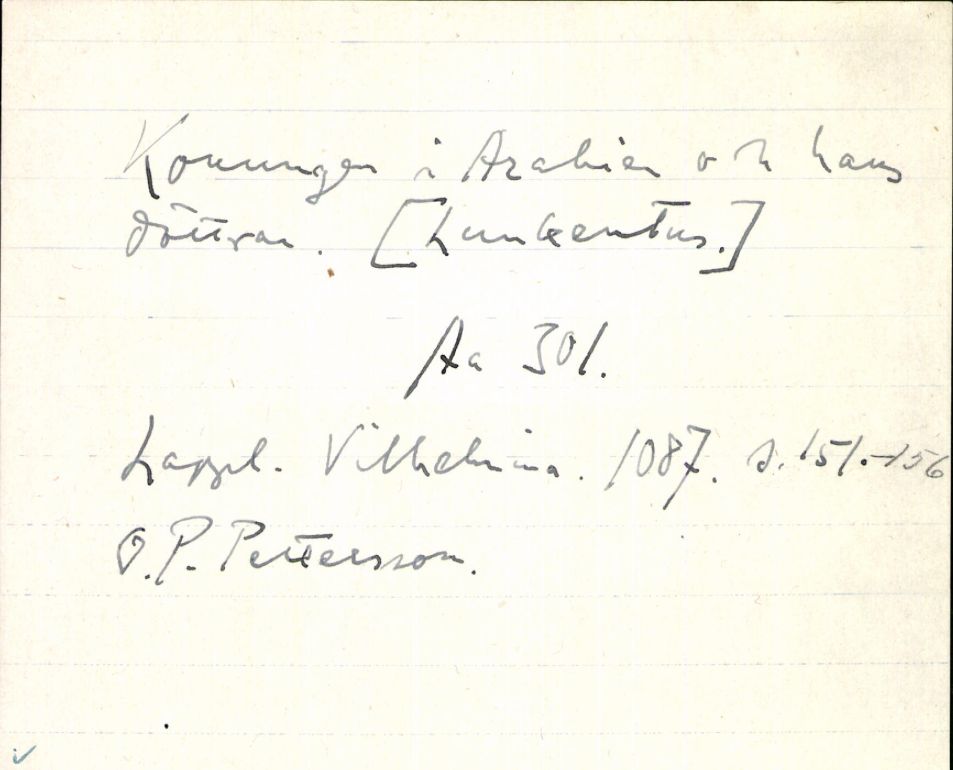 Konungen i Arabien och hans
döttrar. [Lunkentus.]
Aa 301.
Lappl. Vilhelmina. 1087. s. 151.-156
O.P. Pettersson.